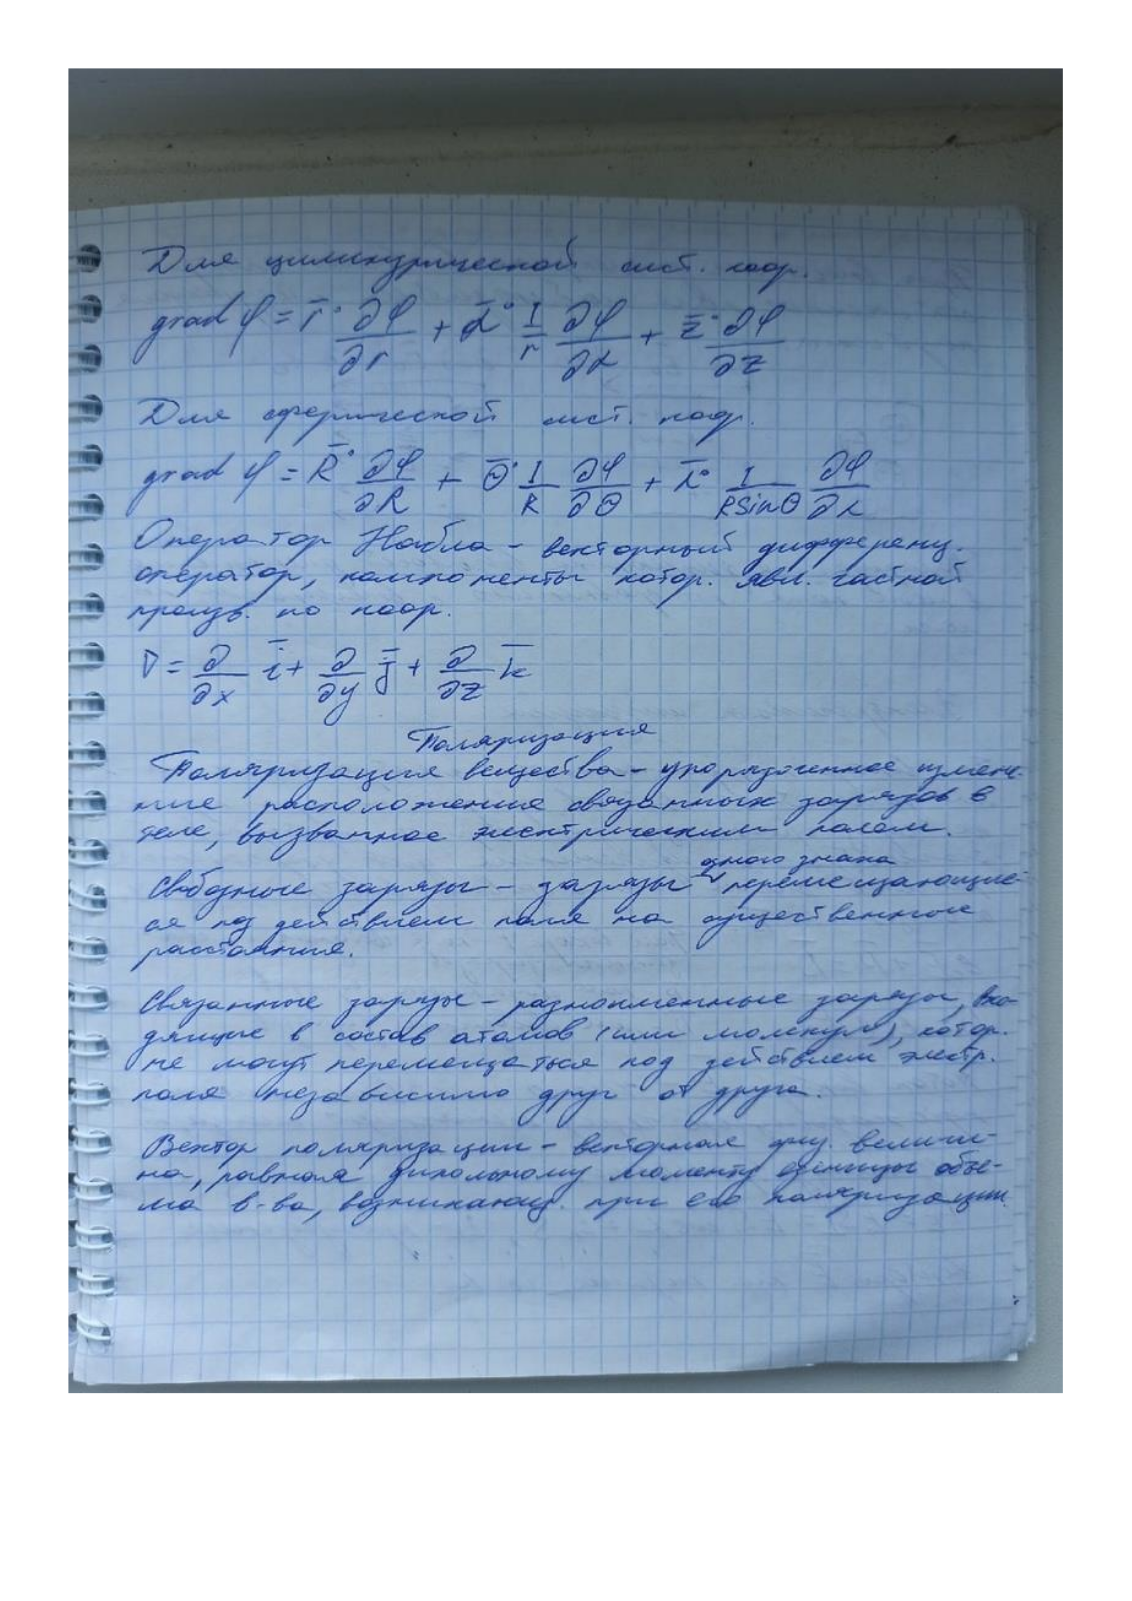 Для цилиндрической сист. коор.
grad φ = r̄° ∂φ/∂r + ᾱ° 1/r ∂φ/∂α + z̄° ∂φ/∂z
Для сферической сист. коор.
grad φ = R̄° ∂φ/∂R + Θ̄° 1/R ∂φ/∂Θ + ᾱ° 1/(R sinΘ) ∂φ/∂α
Оператор Набла - векторный дифференц.
оператор, компоненты котор. явл. частной
произв. по коор.
∇ = ∂/∂x ī + ∂/∂y j̄ + ∂/∂z k̄
Поляризация
Поляризация вещества - упорядоченное измене-
ние расположения связанных зарядов в
теле, вызванное электрическим полем.
одного знака
Свободные заряды - заряды перемещающие-
ся под действием поля на существенные
расстояния.
Связанные заряды - разноименные заряды, вхо-
дящие в состав атомов (или молекул), котор.
не могут перемещаться под действием электр.
поля независимо друг от друга.
Вектор поляризации - векторная физ. величи-
на, равная дипольному моменту единицы объе-
ма в-ва, возникающ. при его поляризации.